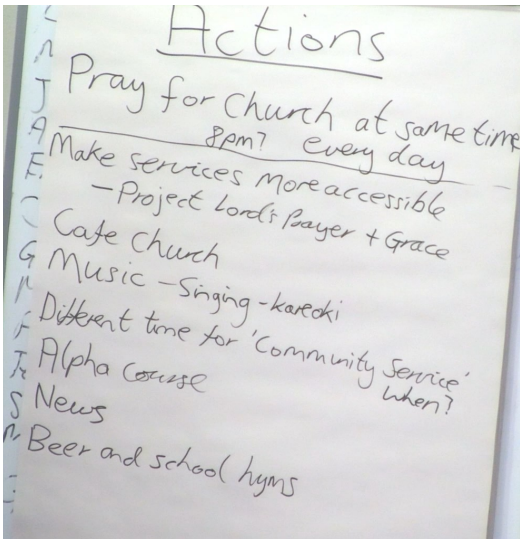 Actions
Pray for Church at same time
8pm? every day
Make services more accessible
- Project Lord's Prayer + Grace
Cafe Church
Music - Singing - kareoki
Different time for 'Community Service'
when?
Alpha course
News
Beer and school hyms